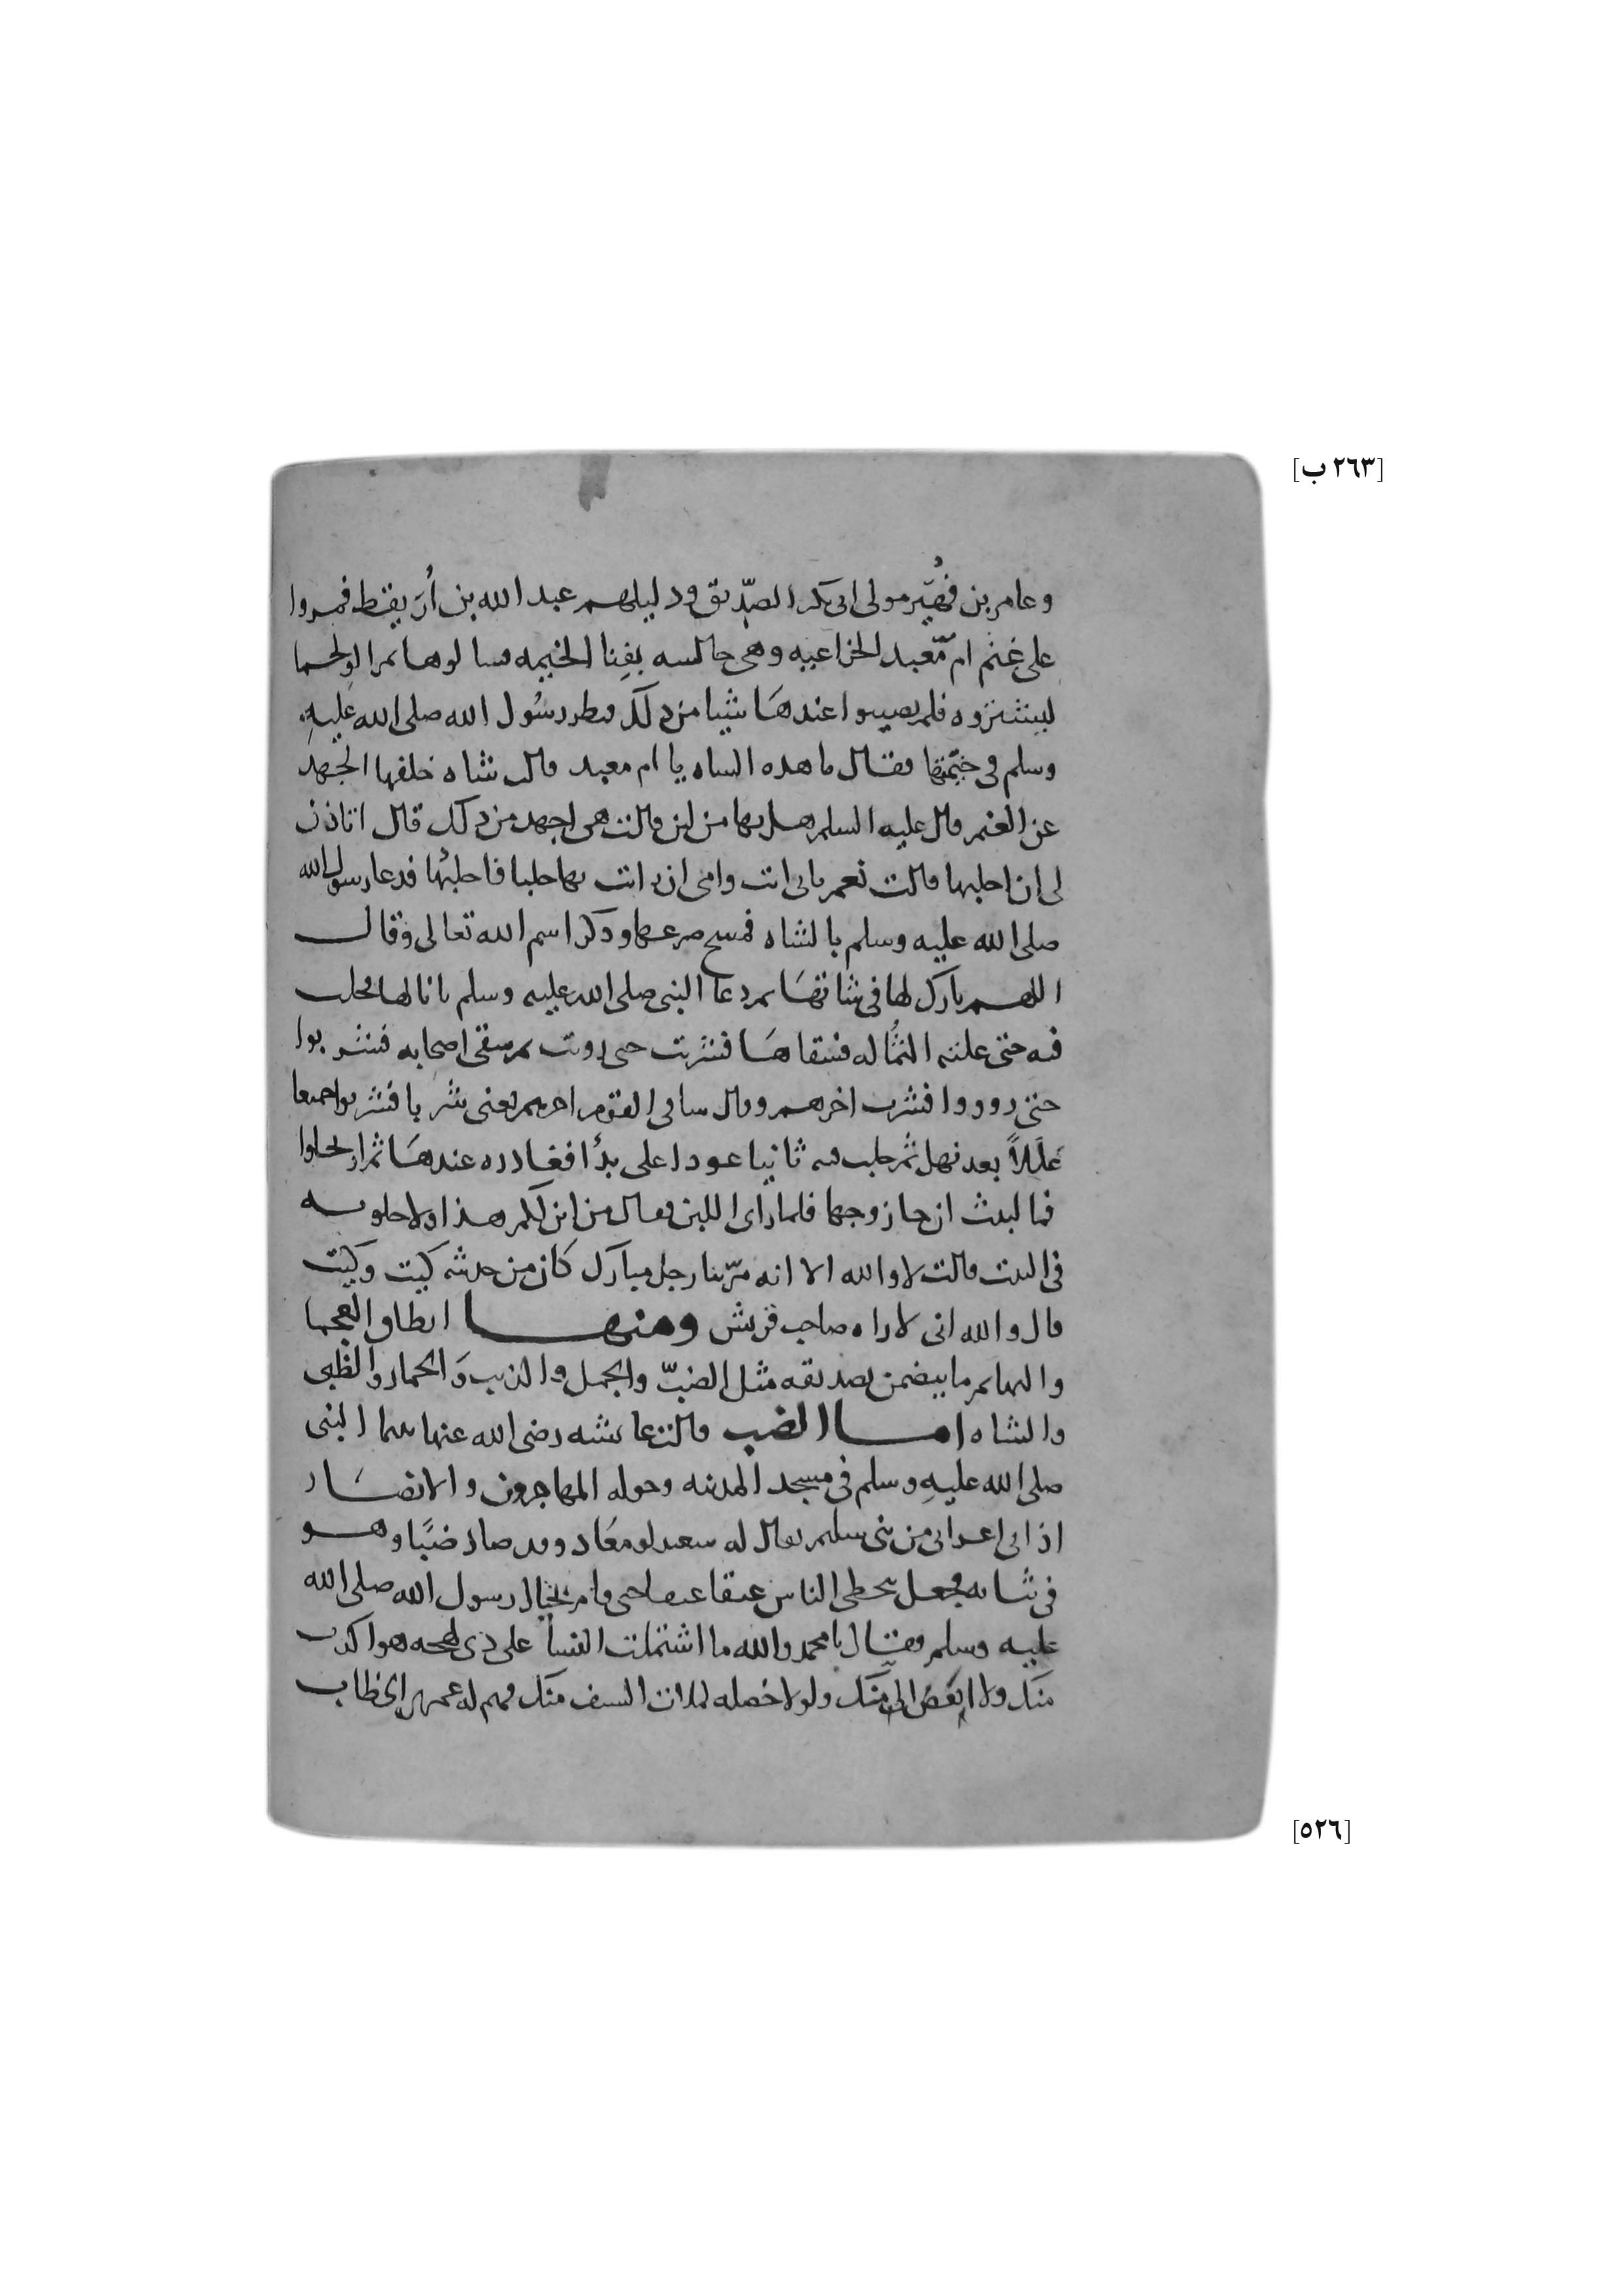 [٢٦٣ ب]
وعامر بن فُهَيْر مولى ابى بكر الصدّيق ودليلهم عبد الله بن أُرَيقط فمروا
على غنم ام مَعْبد الخزاعيه وهى جالسه بفِنا الخيمه فسالوها تمرا او لحما
ليشتروه فلم يصيبوا عندهَا شيا من ذلك فنظر رسُول الله صلى الله عَليهِ
وسلم فى خيمتها فقال ما هذه الشاه يا ام معبد قالت شاه خلفها الجَهد
عن الغنم قال عليه السلم هل بها من لبن قالت هى اجهد من ذلك قال اتاذن
لى ان احلبها قالت نعم بابى انت وامى ان رايت بها حلبا فاحلبْها فدعا رسول الله
صلى الله عليه وسلم بالشاه فمسح ضرعها وذكر اسم الله تعالى وقال
اللهم بارك لها فى شاتهَا ثم دعا النبى صلى الله عليه وسلم بانا لها فحلب
فيه حتى علته الثُماله فسقاهَا فشربت حتى رويت ثم سقى اصحابه فشربوا
حتى رووا فشرب اخرهم وقال ساقى القوم اخرهم يعنى شربا فشربوا جميعا
عَلَلاً بعد نهل ثم حلب فيه ثانيا عودا على بدأ فغادره عندهَا ثم ارتحلوا
فما لبث ان جا زوجها فلما راى اللبن فقال من اين لكم هذا ولا حلوبه
فى البيت قالت لا والله الا انه مرّ بنا رجل مبارك كان من حديثه كيت وكيت
قال والله انى لاراه صاحب قريش ومنها انطاق العجما
والبهايم ما يتضمن تصديقه مثل الضبّ والجمل والذيب وَالحمار والظبى
والشاه اما الضب قالت عايشه رضى الله عنها بينما النبى
صلى الله عليهِ وسلم فى مسجد المدينه وحوله المهاجرون والانصَار
اذ اتى اعرابى من بنى سليم يقال له سعد بن معَاذ وقد صاد ضبًا وهو
فى ثيابه فجعل يتخطى الناس عنقا عنقا حتى قام بحيال رسول الله صلى الله
عليه وسلم وقال يا محمد والله ما اشتملت النسا على ذى لهجه هو اكذب
منك ولا ابغض الىّ منك ولولا خصله لملات السيف منك فهم له عمر بن الخطاب
[٥٢٦]